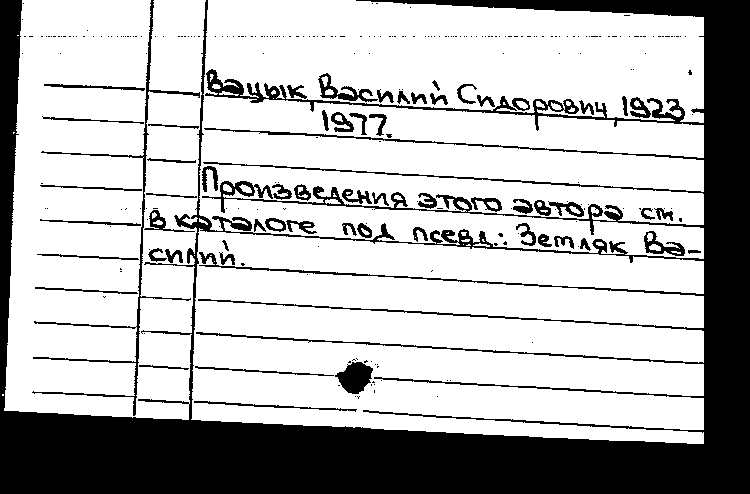 Вацык, Василий Сидорович, 1923-
1977.
Произведения этого автора см.
в каталоге под псевд.: Земляк, Ва-
силий.